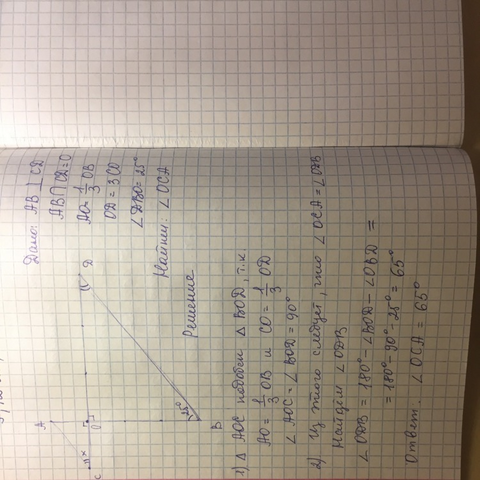 Дано: AB ⊥ CD
AB ∩ CD = O
AO = 1/3 OB
OD = 3 CO
∠DBO = 25°
Найти: ∠OCA
A
C
O
D
B
25°
Решение
1) △ AOC подобен △ BOD, т.к.
AO = 1/3 OB и CO = 1/3 OD
∠ AOC = ∠ BOD = 90°
2) Из этого следует, что ∠ OCA = ∠ODB
Найдём ∠ ODB
∠ ODB = 180° - ∠BOD - ∠OBD =
= 180° - 90° - 25° = 65°
Ответ: ∠ OCA = 65°